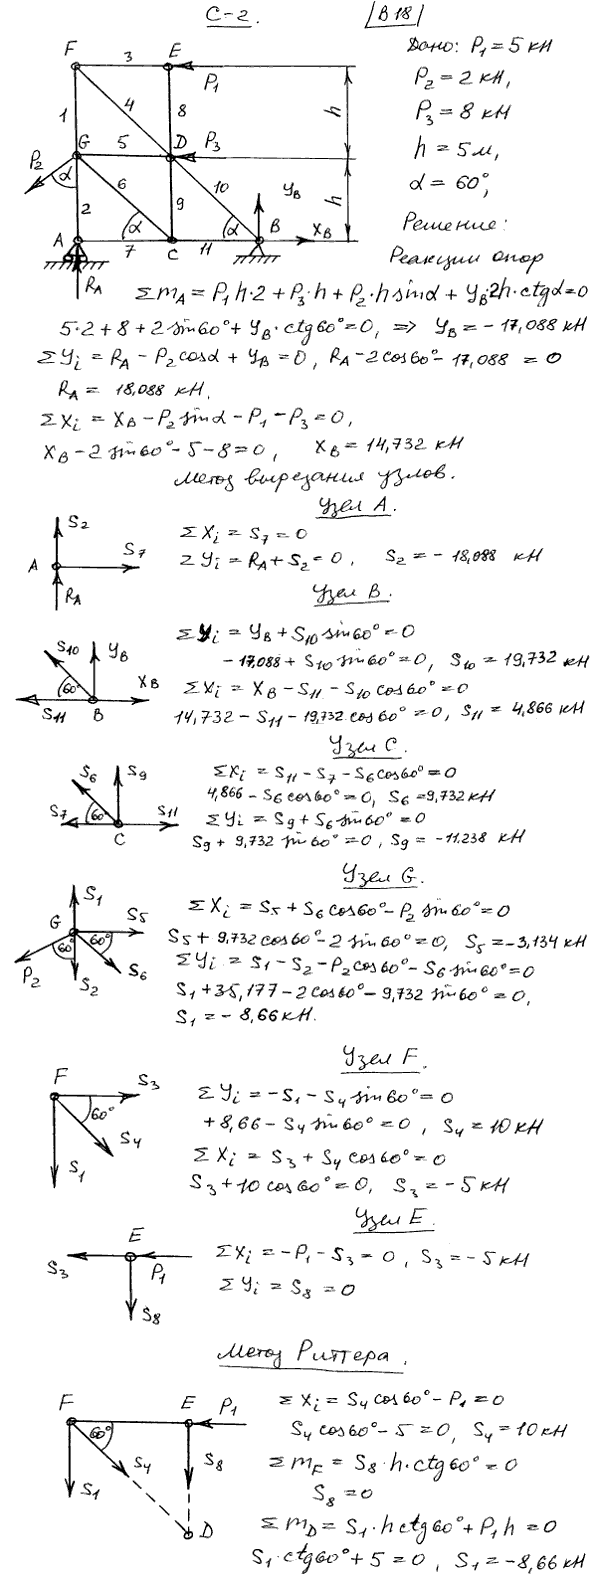 С-2.
В18
Дано: P₁ = 5 кН
P₂ = 2 кН,
P₃ = 8 кН
h = 5 м,
α = 60°,
Решение:
Реакции опор
F 3 E P₁
1 4 8 h
G 5 D P₃
P₂ α 6 10 Y_B
2 9 h
α α B X_B
A 7 C 11
R_A
Σm_A = P₁h·2 + P₃·h + P₂·h sinα + Y_B·2h·ctgα = 0
5·2 + 8 + 2 sin60° + Y_B·ctg60° = 0, => Y_B = -17,088 кН
ΣY_i = R_A - P₂cosα + Y_B = 0, R_A - 2cos60° - 17,088 = 0
R_A = 18,088 кН.
ΣX_i = X_B - P₂ sinα - P₁ - P₃ = 0,
X_B - 2 sin60° - 5 - 8 = 0, X_B = 14,732 кН
Метод вырезания узлов.
Узел A.
S₂
A S₇
R_A
ΣX_i = S₇ = 0
ΣY_i = R_A + S₂ = 0, S₂ = - 18,088 кН
Узел B.
S₁₀ Y_B
60° X_B
S₁₁ B
ΣY_i = Y_B + S₁₀ sin60° = 0
- 17,088 + S₁₀ sin60° = 0, S₁₀ = 19,732 кН
ΣX_i = X_B - S₁₁ - S₁₀ cos60° = 0
14,732 - S₁₁ - 19,732 cos60° = 0, S₁₁ = 4,866 кН
Узел C.
S₆ S₉
S₇ 60° S₁₁
C
ΣX_i = S₁₁ - S₇ - S₆cos60° = 0
4,866 - S₆ cos60° = 0, S₆ = 9,732 кН
ΣY_i = S₉ + S₆ sin60° = 0
S₉ + 9,732 sin60° = 0, S₉ = -11.238 кН
Узел G.
S₁
G S₅
60° 60°
P₂ S₂ S₆
ΣX_i = S₅ + S₆ cos60° - P₂ sin60° = 0
S₅ + 9,732 cos60° - 2 sin60° = 0, S₅ = -3,134 кН
ΣY_i = S₁ - S₂ - P₂cos60° - S₆ sin60° = 0
S₁ + 35,177 - 2cos60° - 9,732 sin60° = 0,
S₁ = - 8,66 кН.
Узел F.
F S₃
60°
S₄
S₁
ΣY_i = -S₁ - S₄ sin60° = 0
+8,66 - S₄ sin60° = 0, S₄ = 10 кН
ΣX_i = S₃ + S₄ cos60° = 0
S₃ + 10 cos60° = 0, S₃ = - 5 кН
Узел E.
E
S₃ P₁
S₈
ΣX_i = -P₁ - S₃ = 0, S₃ = - 5 кН
ΣY_i = S₈ = 0
Метод Риттера.
F E P₁
60°
S₁ S₄ S₈
D
ΣX_i = S₄ cos60° - P₁ = 0
S₄ cos60° - 5 = 0, S₄ = 10 кН
Σm_F = S₈·h·ctg60° = 0
S₈ = 0
Σm_D = S₁·h ctg60° + P₁h = 0
S₁·ctg60° + 5 = 0, S₁ = -8,66 кН